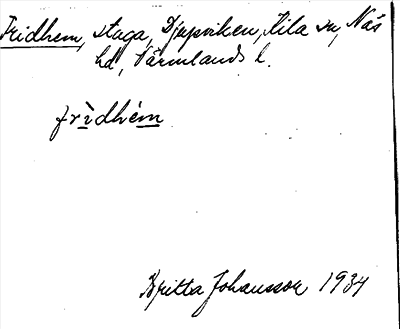 Fridhem, stuga, Djupviken, Kila sn, Näs
hd, Värmlands l.
frìdhém
Britta Johansson 1934